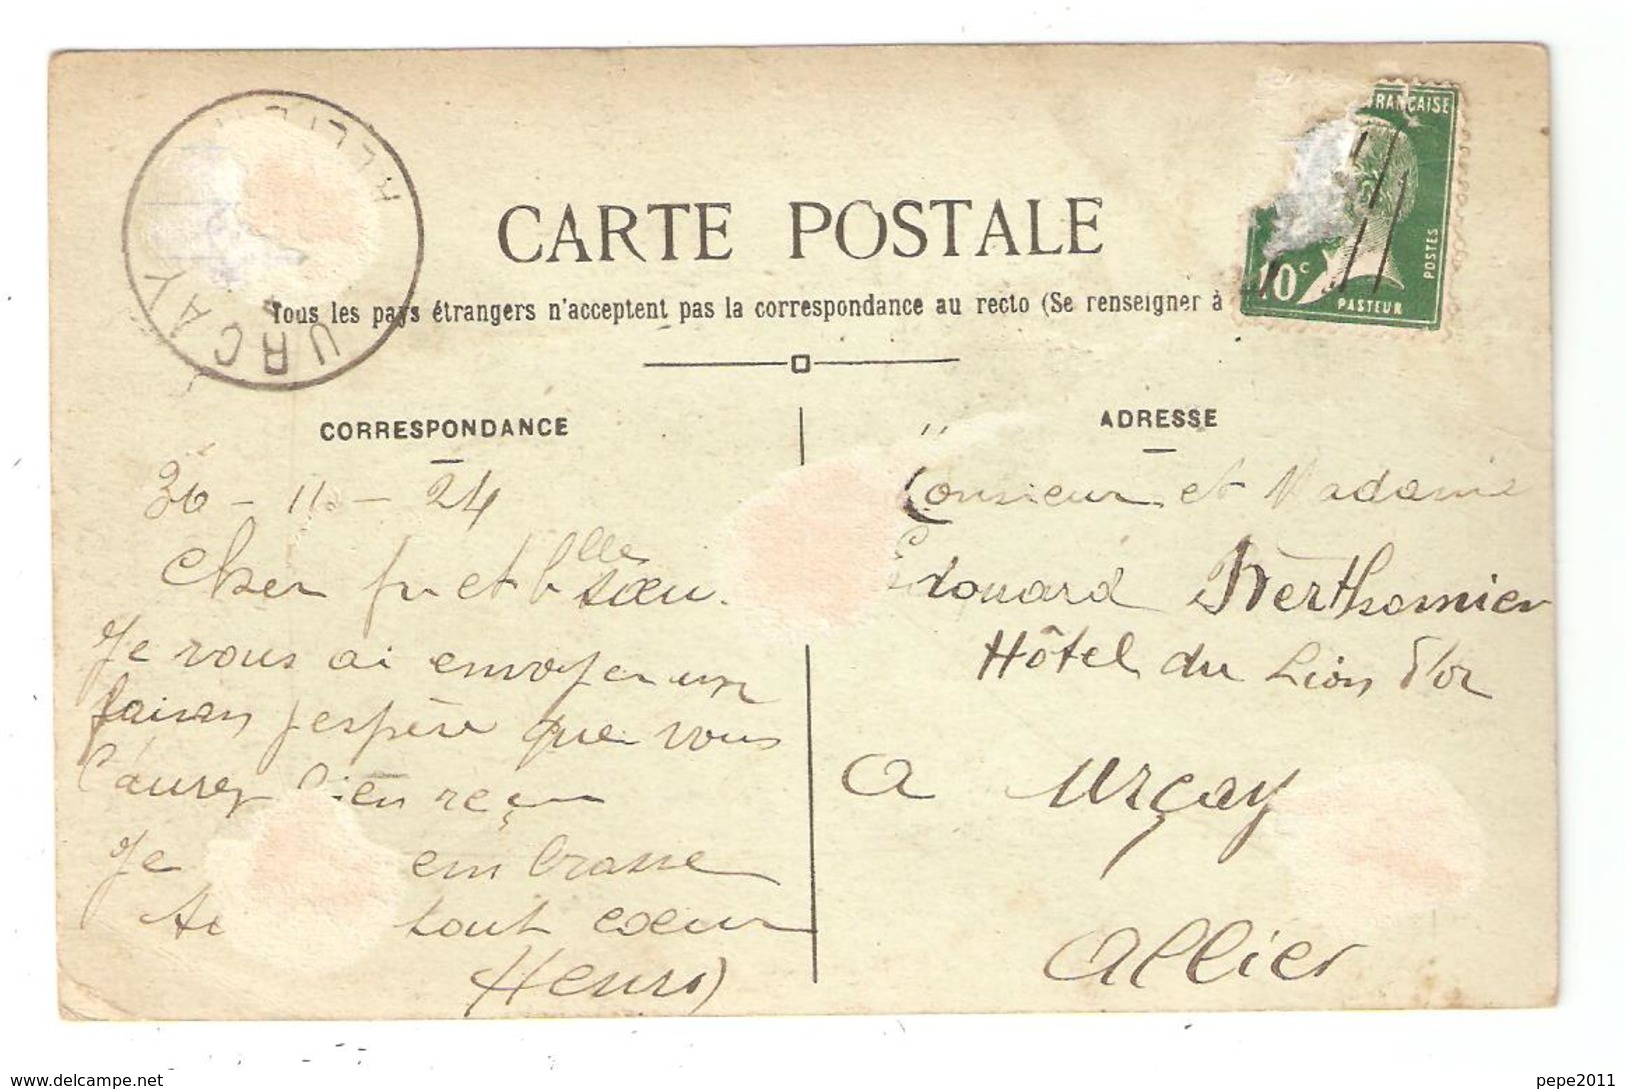 CARTE POSTALE
Tous les pays étrangers n'acceptent pas la correspondance au recto (Se renseigner à
URÇAY
ALLIER
RANÇAISE
POSTES
10c
PASTEUR
CORRESPONDANCE
30 - 11 - 24
Cher fr et blle sœu.
Je vous ai envoyer un
faisan j'espère que vous
l'aurez bien reçu
Je embrasse
tout cœur
Henri
ADRESSE
onsieur et Madame
Edouard Berthomier
Hôtel du Lion d'or
A Urçay
Allier
www.delcampe.net
pepe2011